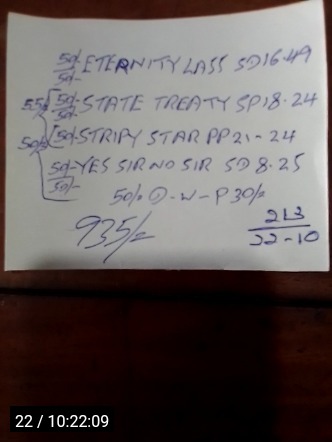 50/- ETERNITY LASS SD16.49
50/-
55/- 50/- STATE TREATY SP18.24
50/-
50/- 50/- STRIPY STAR PP21-24
50/- YES SIR NO SIR SD 8.25
50/-
50/- D-W-P30/-
935/-
213
22-10
22 / 10:22:09